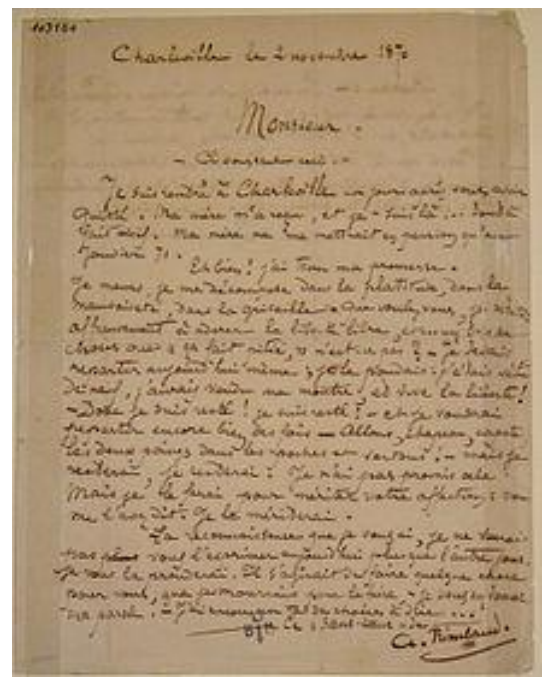 Charleville le 2 novembre 1870
Monsieur.
– A vous seul ceci. –
Je suis rentré à Charleville un jour après vous avoir
quitté. Ma mère m'a reçu, et je – suis là... tout à
fait oisif. Ma mère ne me mettrait en pension qu'en
janvier 71.
Eh bien ! j'ai tenu ma promesse.
Je meurs, je me décompose dans la platitude, dans la
mauvaiseté, dans la grisaille. Que voulez-vous, je m'entête
affreusement à adorer la liberté libre, et
choses que "ça fait pitié", n'est-ce pas ? – Je devais
repartir aujourd'hui même ; je le pouvais : j'étais vêtu
de neuf, j'aurais vendu ma montre, et vive la liberté !
– Donc je suis resté ! je suis resté ! – et je voudrai
repartir encore bien des fois – Allons, chapeau, capote
les deux poings dans les poches et sortons ! – Mais je
resterai, je resterai. Je n'ai pas promis cela.
Mais je le ferai pour mériter votre affection : vous
me l'avez dit. Je la mériterai.
La reconnaissance que je vous ai, je ne saurais
pas vous l'exprimer aujourd'hui plus que l'autre jour.
Je vous la prouverai. Il s'agirait de faire quelque chose
pour vous, que je mourrais pour le faire – je vous en donne
ma parole. – J'ai encore un tas de choses à dire...
Ce "sans-coeur" de
A. Rimbaud.